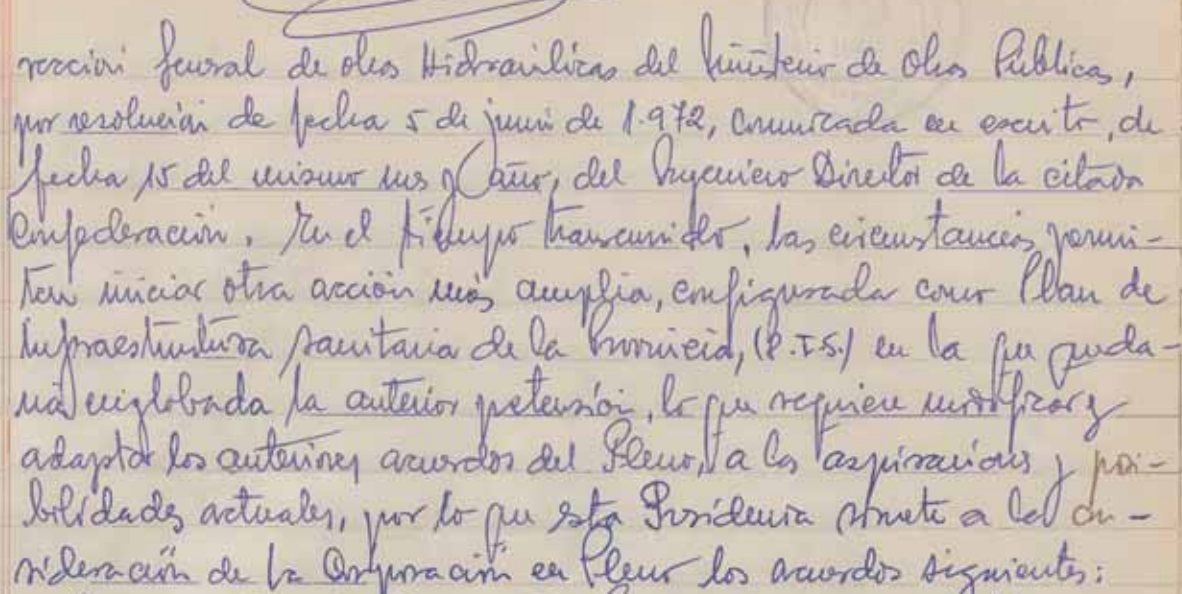 rección General de Obras Hidraúlicas del Ministerio de Obras Públicas,
por resolución de fecha 5 de junio de 1.972, comunicada en escrito, de
fecha 15 del mismo mes y año, del Ingeniero Director de la citada
Confederación. En el tiempo transcurrido, las circunstancias permi-
ten iniciar otra acción más amplia, configurada como Plan de
Infraestructura Sanitaria de la Provincia, (P.I.S.) en la que queda-
ría englobada la anterior pretensión, lo que requiere modificar y
adaptar los anteriores acuerdos del Pleno, a las aspiraciones y posi-
bilidades actuales, por lo que esta Presidencia somete a la con-
sideración de la Corporación en Pleno los acuerdos siguientes: